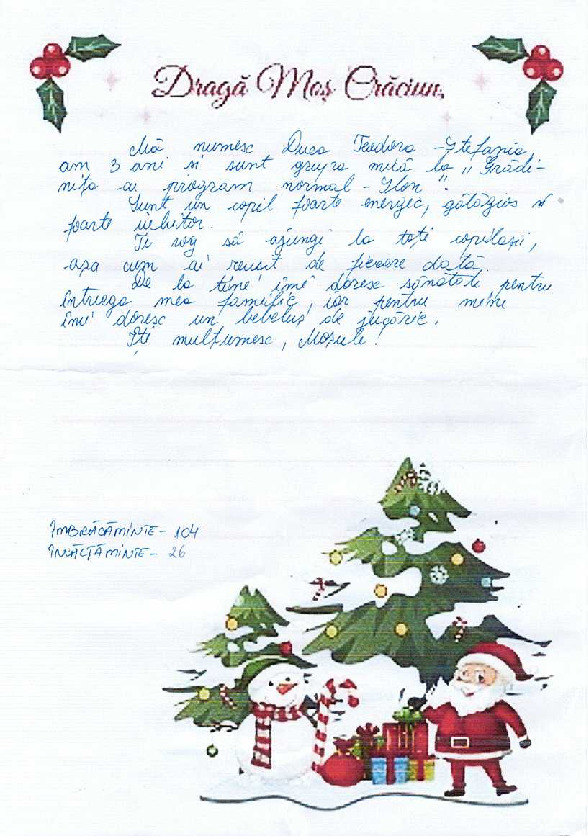 Dragă Moș Crăciun,
Mă numesc Duca Teodora - Ștefania,
am 3 ani și sunt grupa mică la "Grădi-
nița cu program normal - Flori".
Sunt un copil foarte energic, gălăgios și
foarte iubitor.
Te rog să ajungi la toți copilașii,
așa cum ai reușit de fiecare dată.
De la tine îmi doresc sănătate pentru
întreaga mea familie, iar pentru mine
îmi doresc un bebeluș de jucărie.
Îți mulțumesc, Moșule!
ÎMBRĂCĂMINTE - 104
ÎNCĂLȚĂMINTE - 26